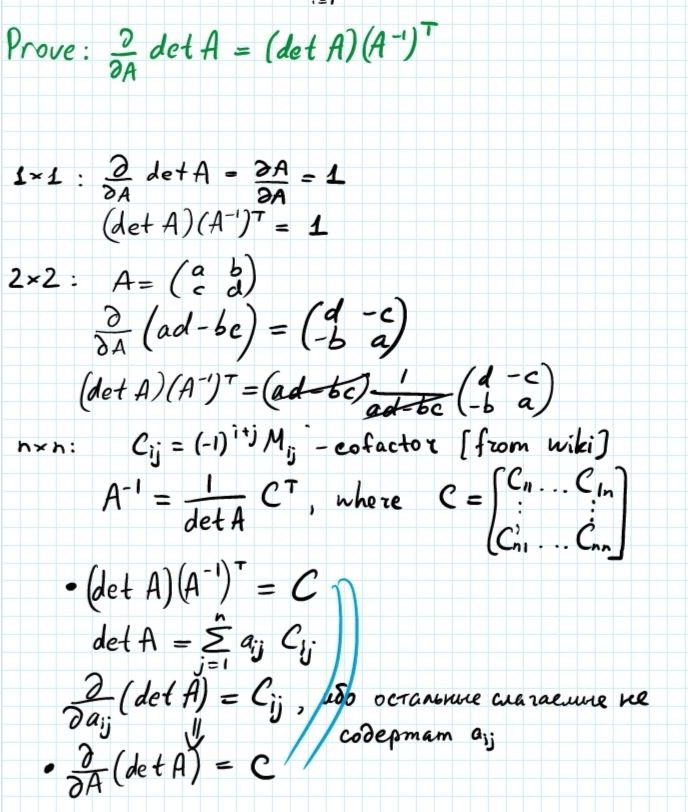 Prove: ∂/∂A det A = (det A)(A⁻¹)ᵀ
1×1 : ∂/∂A det A = ∂A/∂A = 1
(det A)(A⁻¹)ᵀ = 1
2×2 : A = (a b; c d)
∂/∂A (ad-bc) = (d -c; -b a)
(det A)(A⁻¹)ᵀ = (ad-bc) 1/(ad-bc) (d -c; -b a)
n×n: Cij = (-1)^(i+j) Mij - cofactor [from wiki]
A⁻¹ = 1/det A Cᵀ, where C = [C11 ... C1n; ⋮ ⋮; Cn1 ... Cnn]
• (det A)(A⁻¹)ᵀ = C
det A = Σ_{j=1}^{n} aij Cij
∂/∂aij (det A) = Cij, ибо остальные слагаемые не
содержат aij
⇓
• ∂/∂A (det A) = C